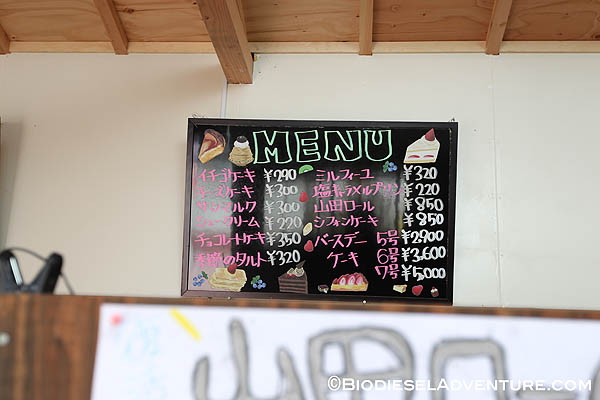 MENU
イチゴケーキ ¥290
チーズケーキ ¥300
¥300
シュークリーム ¥220
チョコレートケーキ ¥350
季節のタルト ¥320
ミルフィーユ ¥320
塩キャラメルプリン ¥220
山田ロール ¥850
シフォンケーキ ¥850
バースデーケーキ 5号 ¥2900
6号 ¥3,600
7号 ¥5000
山田ロ
©BIODIESELADVENTURE.COM